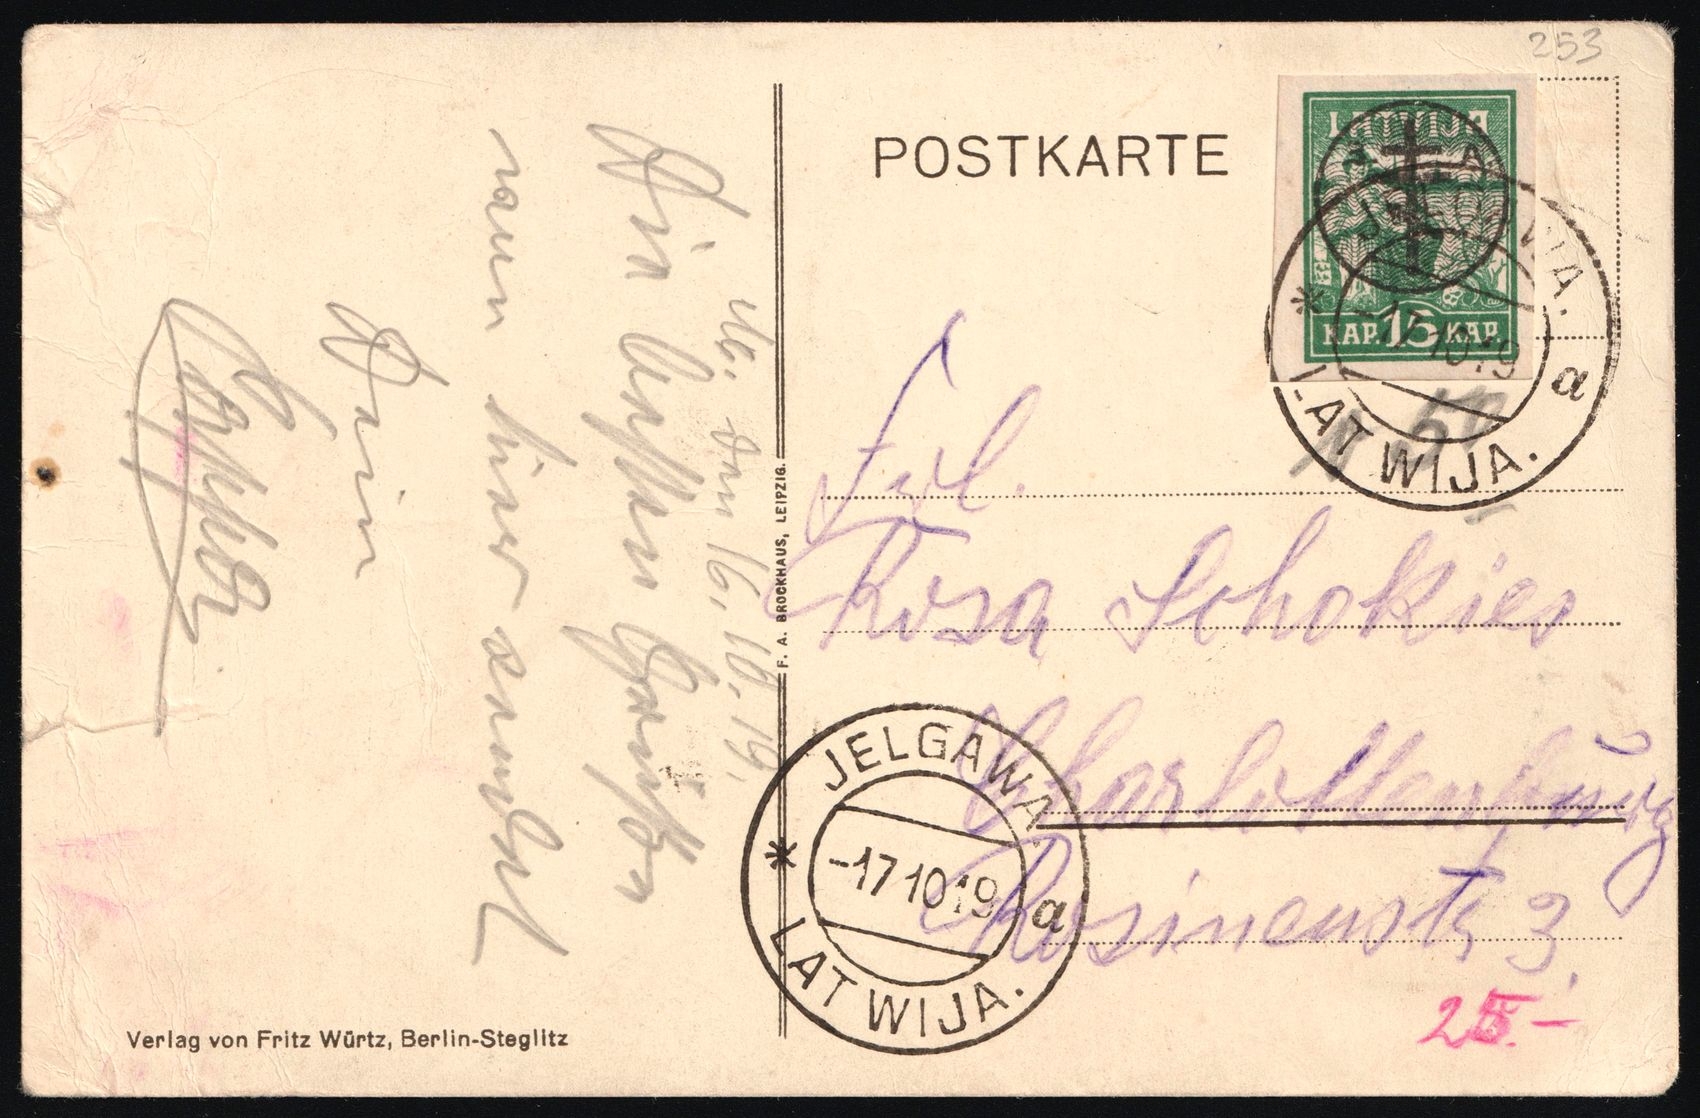 253
POSTKARTE
LATVIJA
KAP. 15 KAP.
JELGAWA.
-17 10 19
a
LATWIJA.
Frl.
Rosa Schokies
Charlottenburg
Rosinenstr 3.
25.-
JELGAWA.
-17 10 19
a
LATWIJA.
F. A. BROCKHAUS, LEIPZIG.
den 16.10.19.
Die besten Grüße
von hier sendet
Dein
Verlag von Fritz Würtz, Berlin-Steglitz